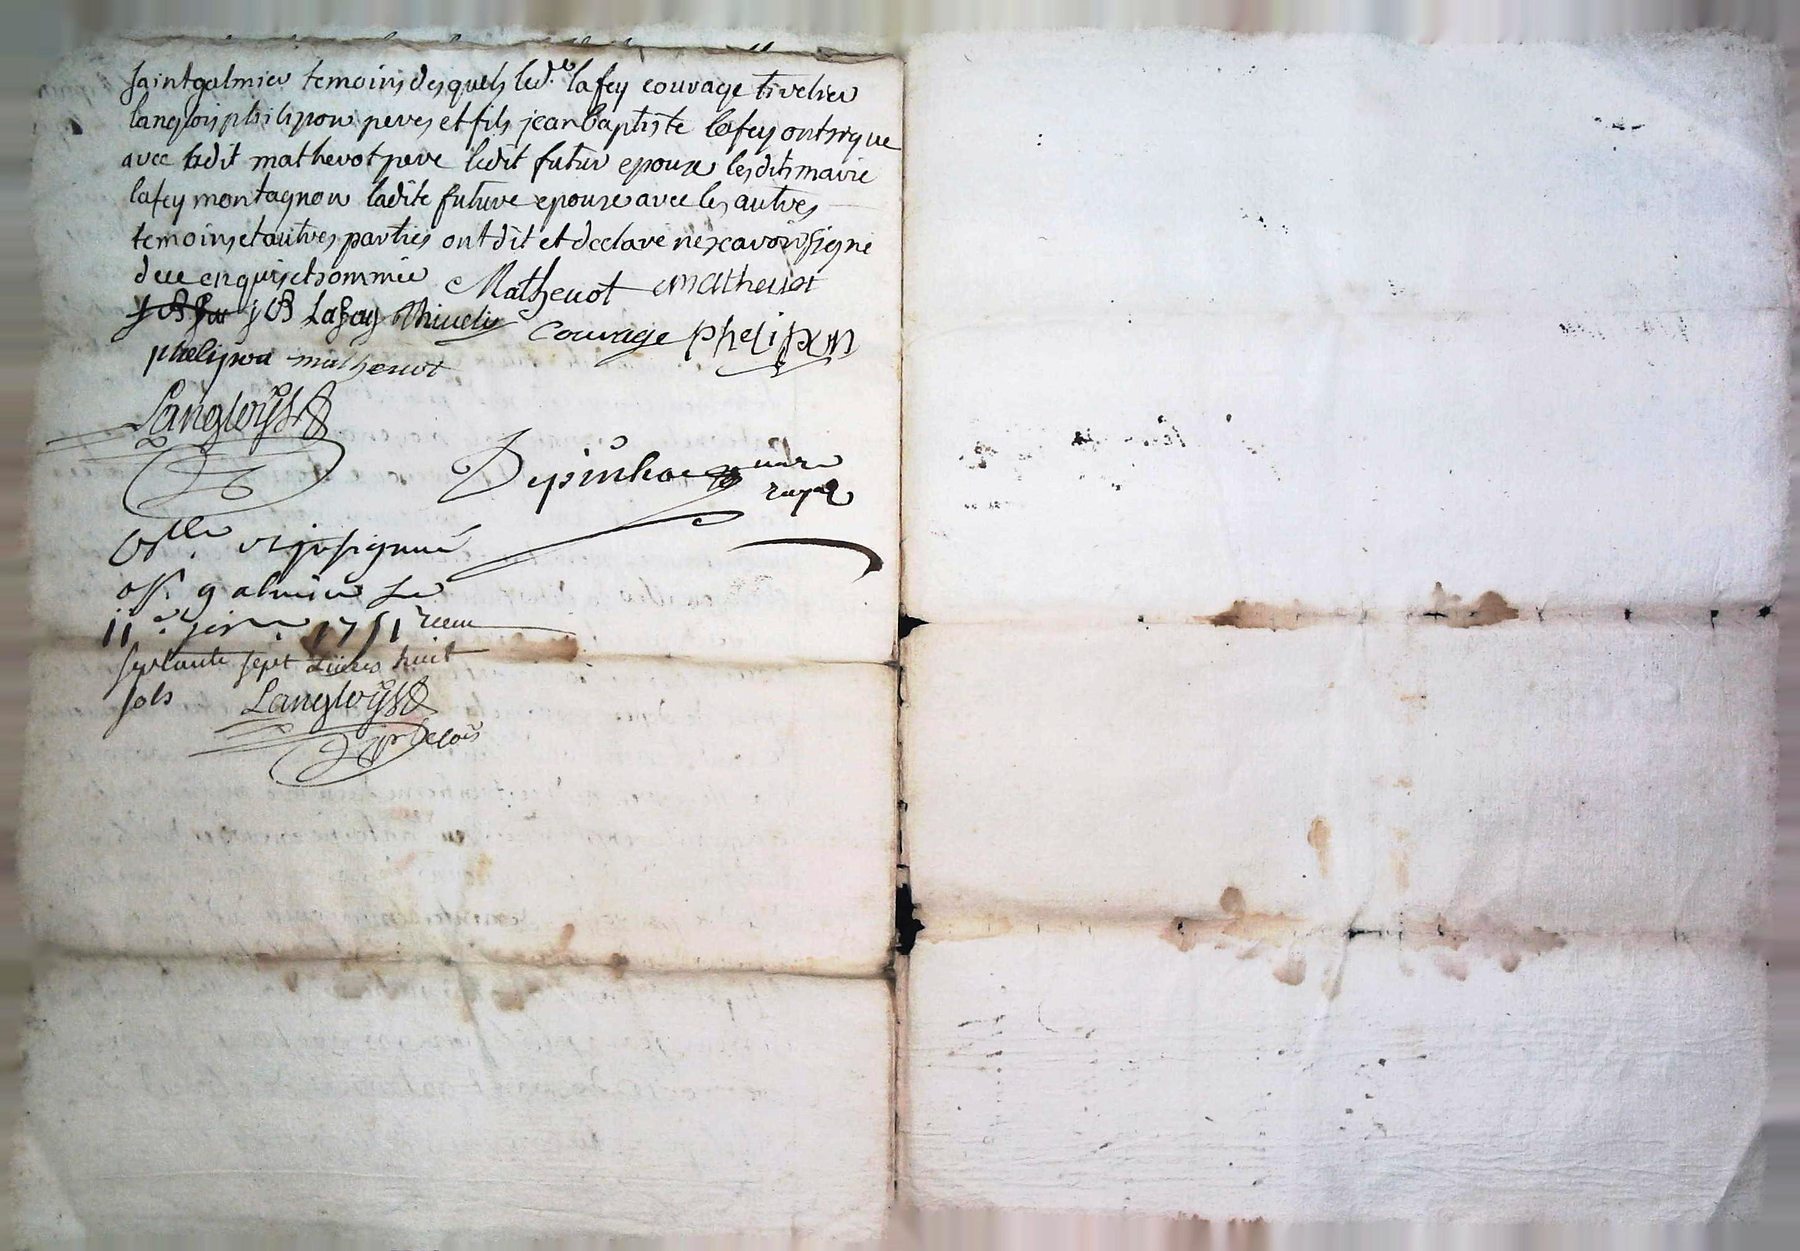 saintgalmier temoins desquels led. lafey couvage tivelier
langlois philipon peres et fils jean baptiste lafey ont signe
avec ledit mathevot pere ledit futur epoux lesdits marie
lafey montagnon ladite future epouse avec les autres
temoins et autres parties ont dit et declare ne scavoir signe
de ce enquis et sommé Mathevot mathevot
JB Lafay Thivelier Couvage phelipon
phelipon mathevot
Langloys
royal
soussigné
galmier le
11e 1751 receu
septante sept Livres huit
sols Langloys